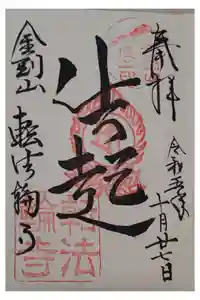 奉拝
令和五年
十月廿七日
法起
金剛山
転法輪寺
轉法
輪寺